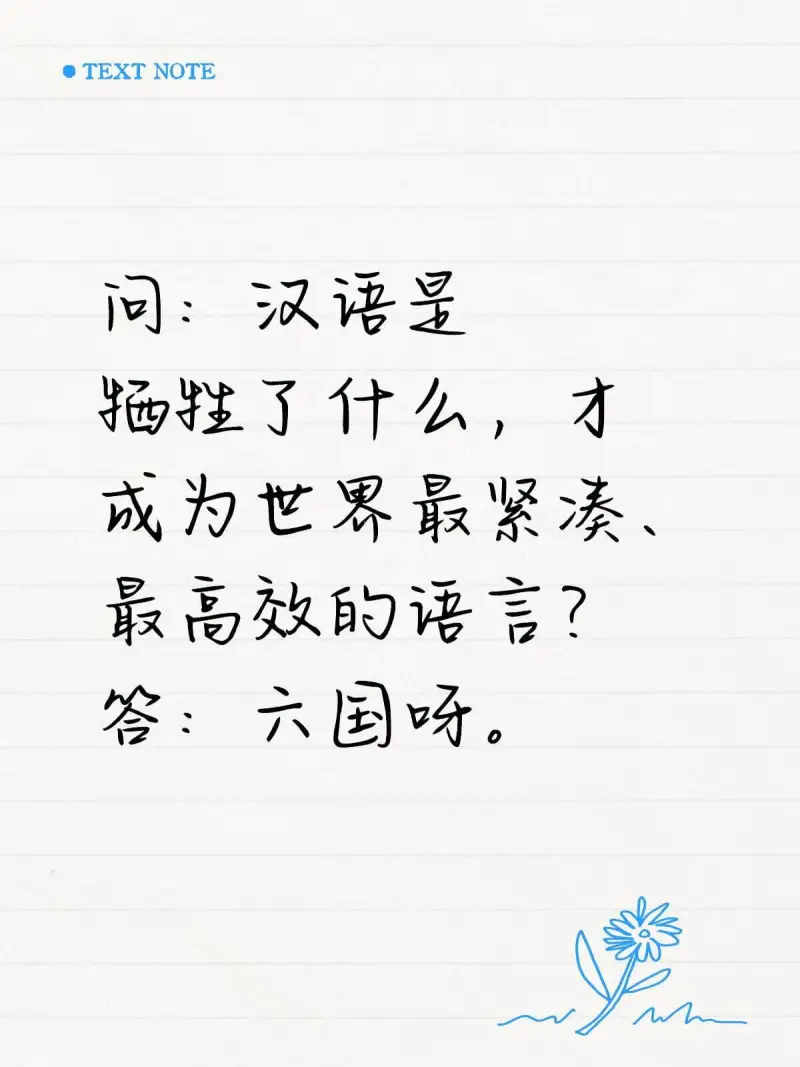 TEXT NOTE
问：汉语是
牺牲了什么，才
成为世界最紧凑、
最高效的语言？
答：六国呀。